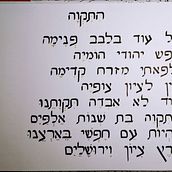 התקוה
ל עוד בלבב פנימה
פש יהודי הומיה
לפאתי מזרח קדימה
ין לציון צופיה
וד לא אבדה תקותנו
תקוה בת שנות אלפים
היות עם חפשי בארצנו
רץ ציון וירושלים